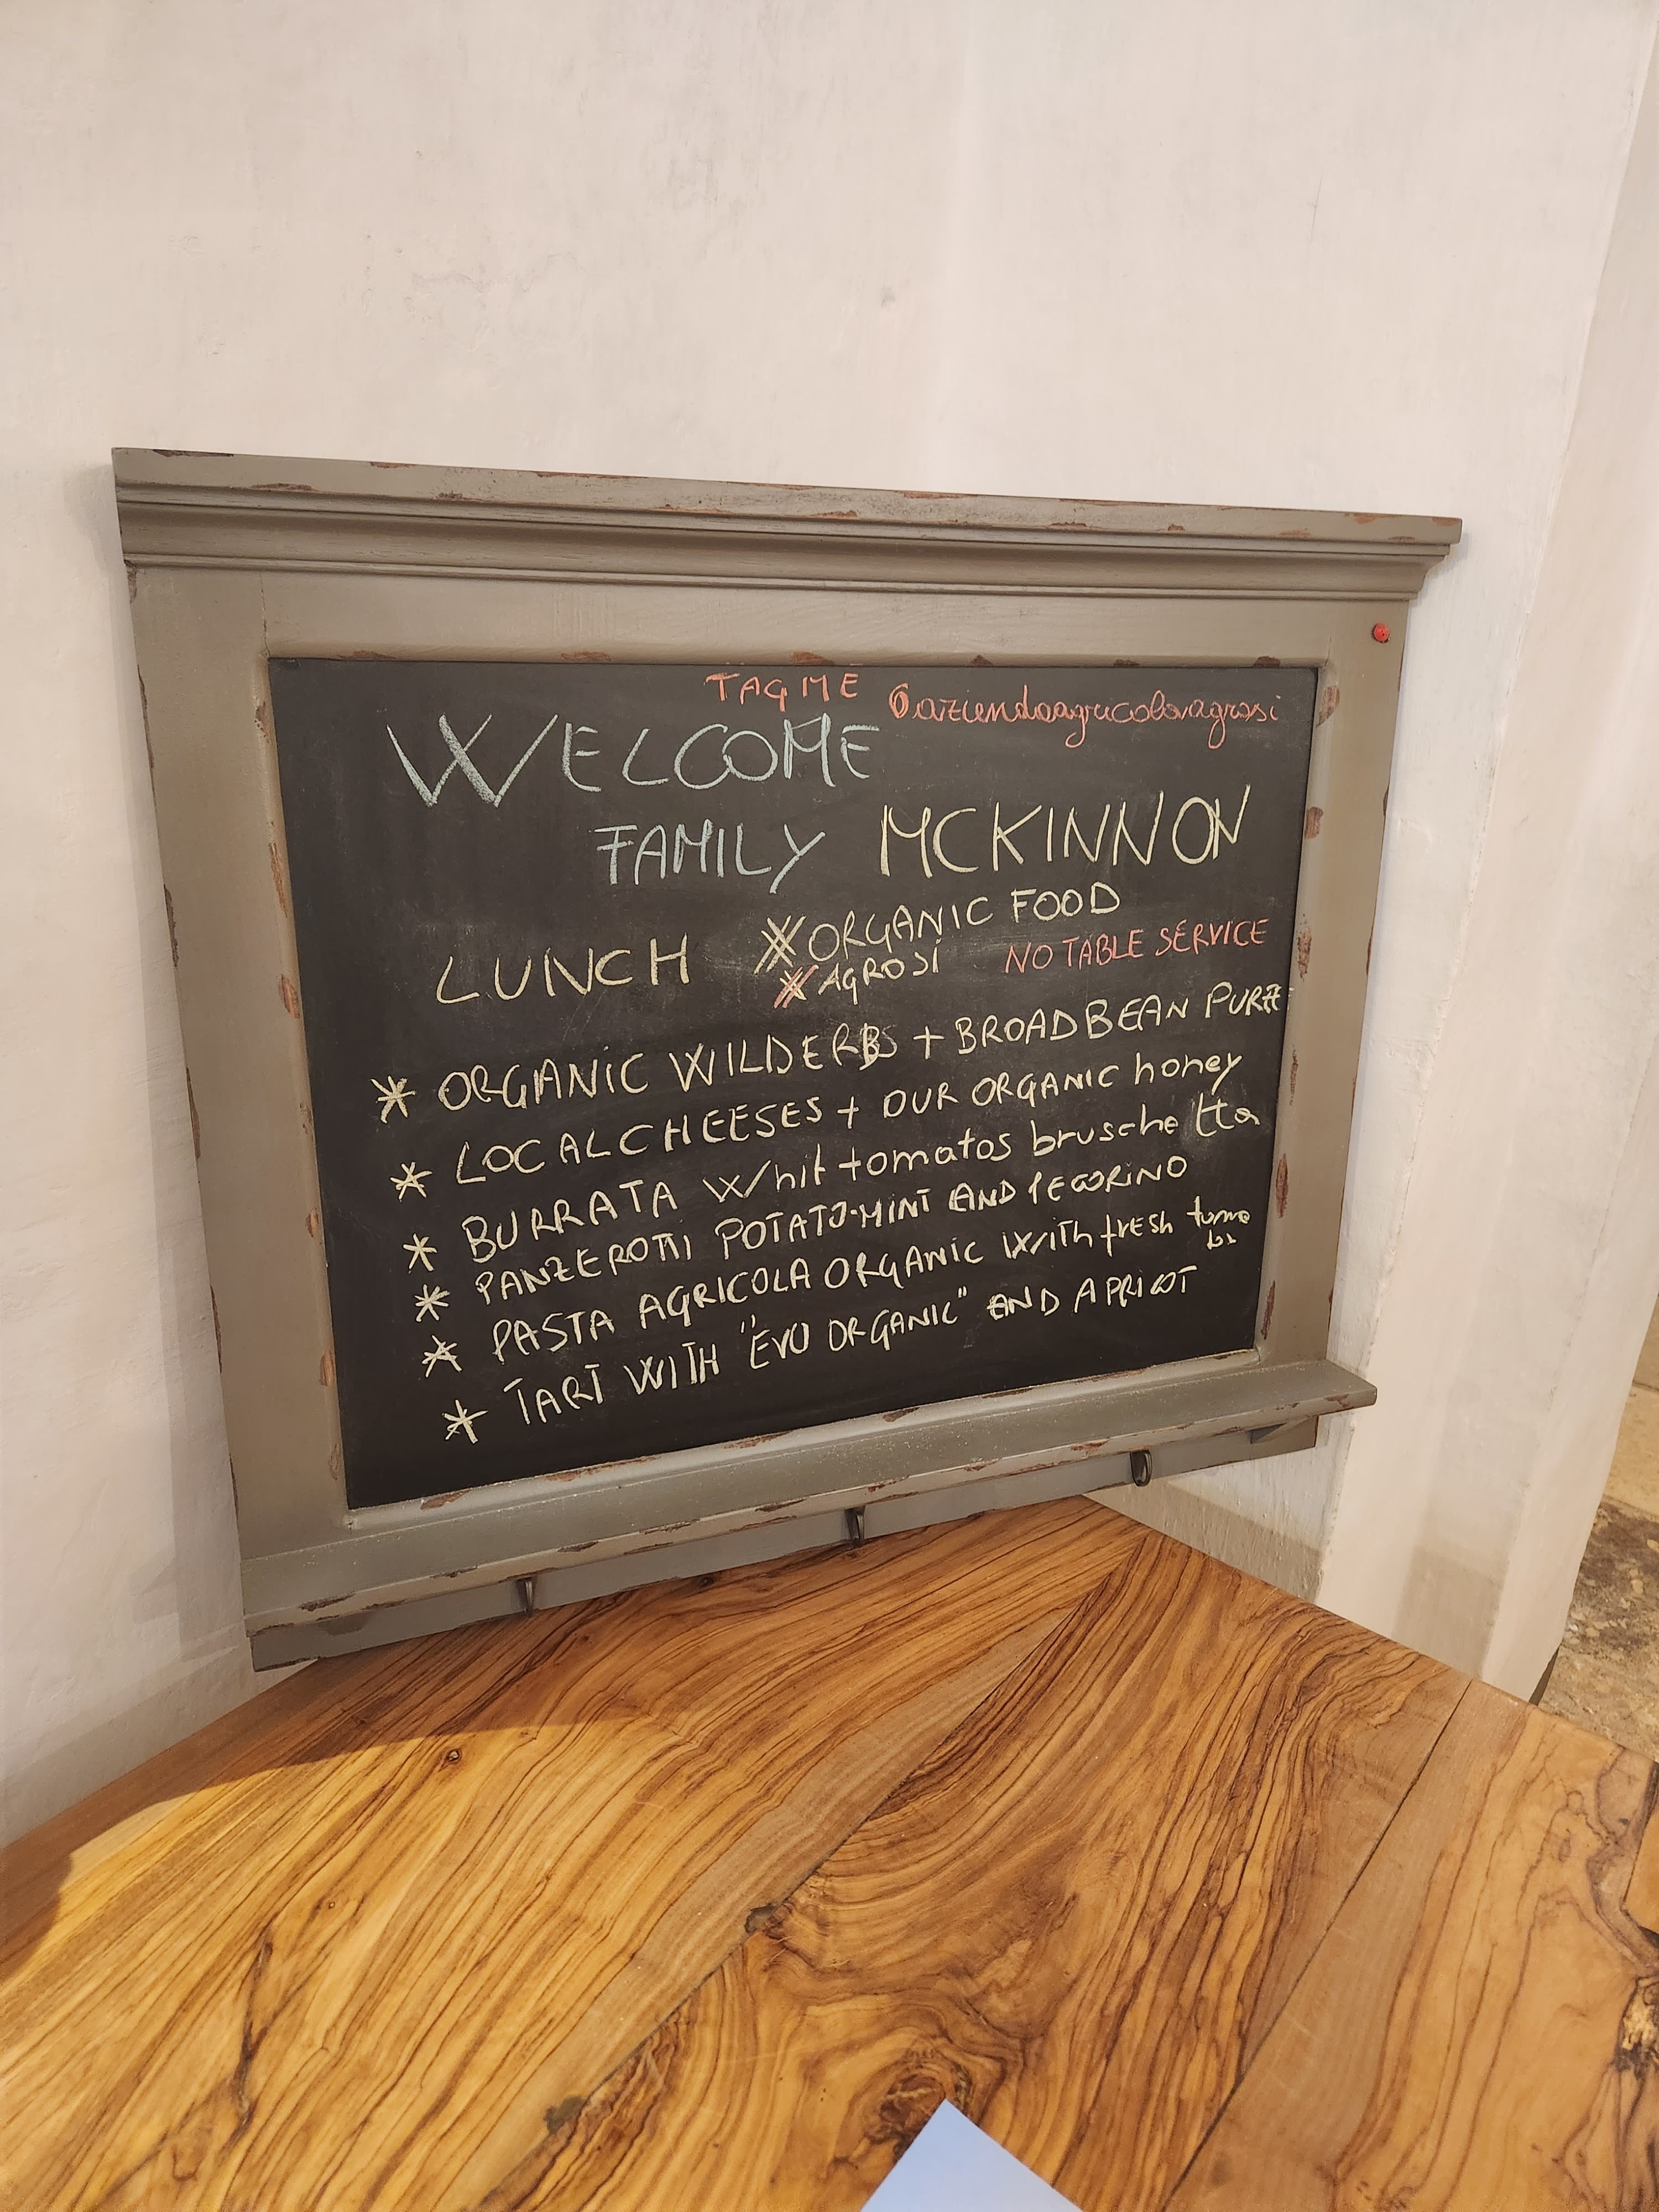 TAG ME @aziendaagricolaagrosi
WELCOME
FAMILY MCKINNON
LUNCH
*ORGANIC FOOD
*AGROSÌ
NO TABLE SERVICE
* ORGANIC WILDERBS + BROADBEAN PUREE
* LOCAL CHEESES + OUR ORGANIC honey
* BURRATA Whit tomatos bruschetta
* PANZEROTTI POTATO-MINT AND PECORINO
* PASTA AGRICOLA ORGANIC With fresh
* TART WITH "EVO ORGANIC" AND APRICOT